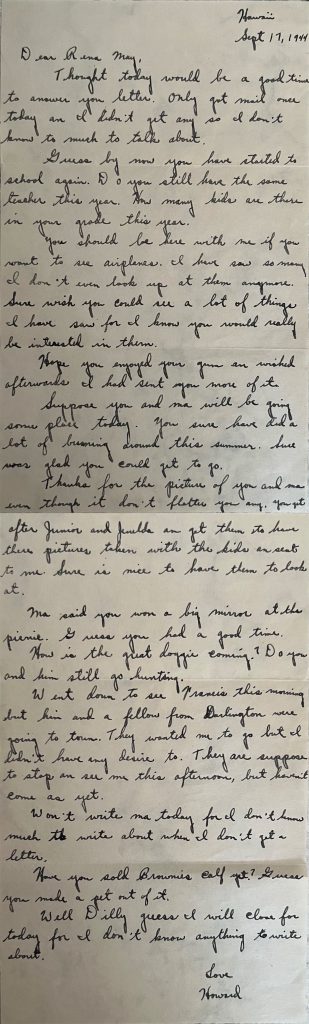 Hawaii
Sept 17, 1944
Dear Rena May,
Thought today would be a good time
to answer you letter. Only got mail once
today an I didn't get any so I don't
know to much to talk about.
Guess by now you have started to
school again. Do you still have the same
teacher this year. How many kids are there
in your grade this year.
You should be here with me if you
want to see airplanes. I have saw so many
I don't even look up at them anymore.
Sure wish you could see a lot of things
I have saw for I know you would really
be interested in them.
Hope you enjoyed your gum an wished
afterwards I had sent you more of it.
Suppose you and ma will be going
some place today. You sure have did a
lot of bumming around this summer. Sure
was glad you could get to go.
Thanks for the picture of you and ma
even though it don't flatter you any. You get
after Junior and an get them to have
there pictures taken with the kids an sent
to me. Sure is nice to have them to look
at.
Ma said you won a big mirror at the
picnic. Guess you had a good time.
How is the great doggie coming? Do you
and him still go hunting.
Went down to see Francis this morning
but him and a fellow from Darlington were
going to town. They wanted me to go but I
didn't have any desire to. They are suppose
to stop an see me this afternoon, but haven't
come as yet.
Won't write ma today for I don't know
much to write about when I don't get a
letter.
Have you sold Brownies calf yet? Guess
you made a pet out of it.
Well Dilly guess I will close for
today for I don't know anything to write
about.
Love
Howard